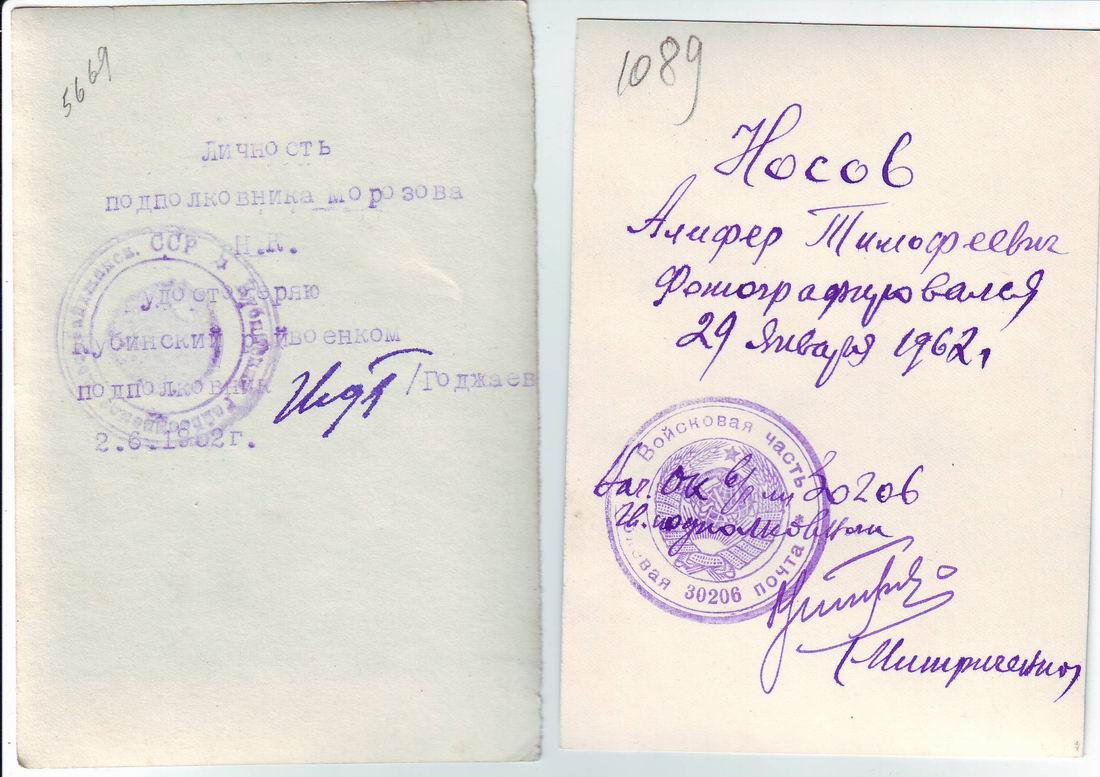 5669
Личность
подполковника Морозова
Н.К.
удостоверяю
Кубинский райвоенком
подполковник /Годжаев
2.6.1962г.
ССР
1089
Носов
Алифер Тимофеевич
Фотографировался
29 января 1962 г.
Войсковая часть
Нач. ОК в/ч пп 30206
Гв. подполковник
полевая почта 30206
(Митриченко)